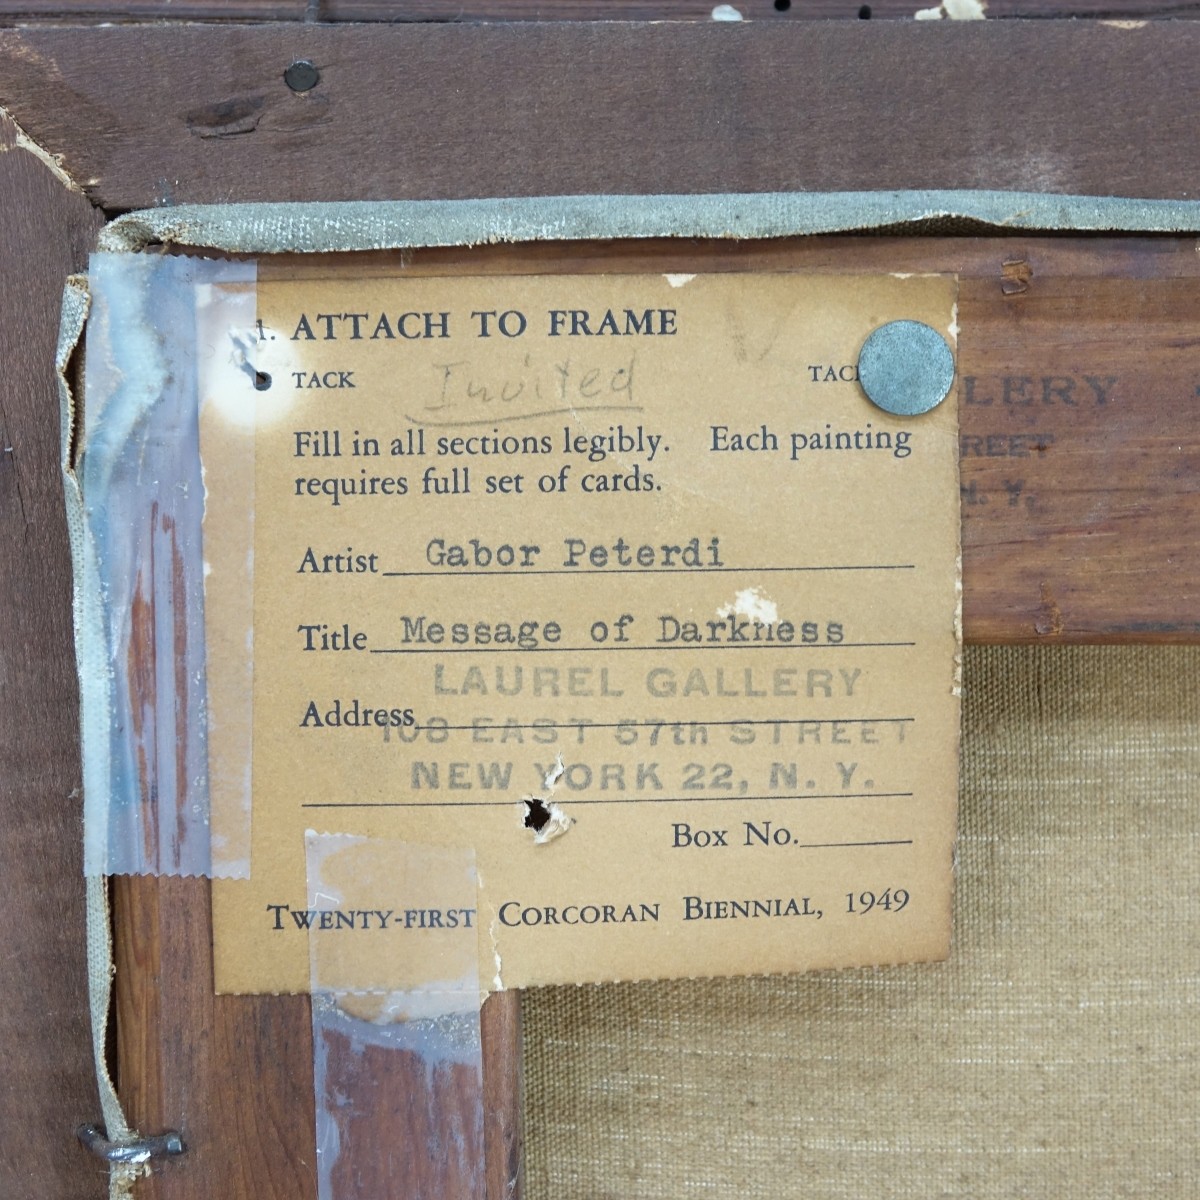 1. ATTACH TO FRAME
TACK Invited TAC
Fill in all sections legibly. Each painting
requires full set of cards.
Artist Gabor Peterdi
Title Message of Darkness
LAUREL GALLERY
Address
108 EAST 57th STREET
NEW YORK 22, N. Y.
Box No.
TWENTY-FIRST CORCORAN BIENNIAL, 1949
LERY
REET
N. Y.